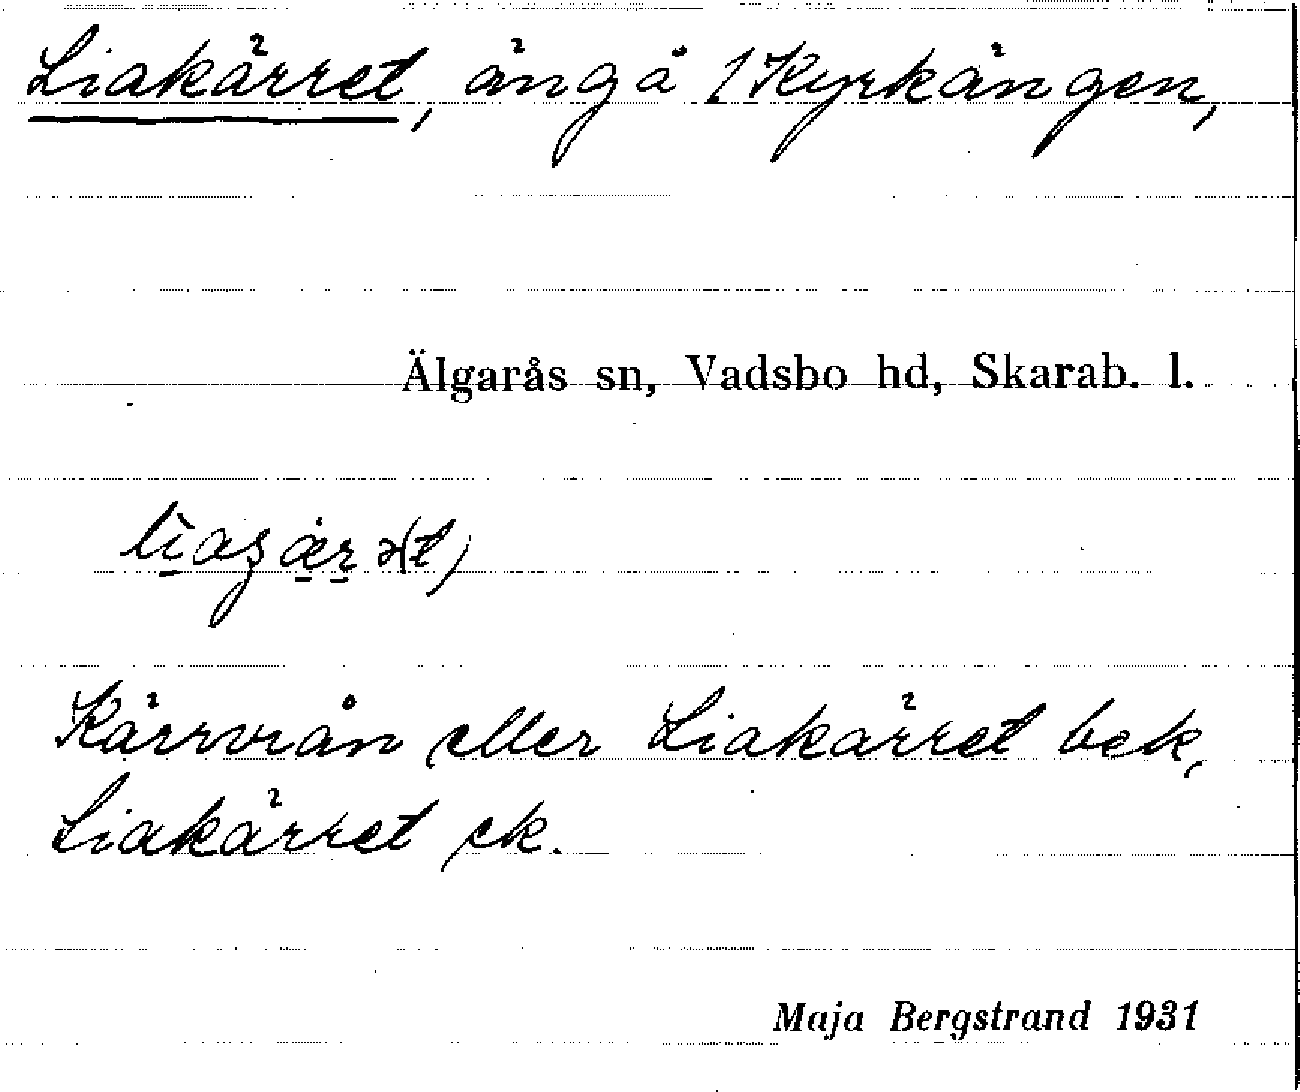 Liakärret, äng å 1 Kyrkängen,
Älgarås sn, Vadsbo hd, Skarab. l.
Kärrvrån eller Liakärret bek,
Liakärret ek.
Maja Bergstrand 1931